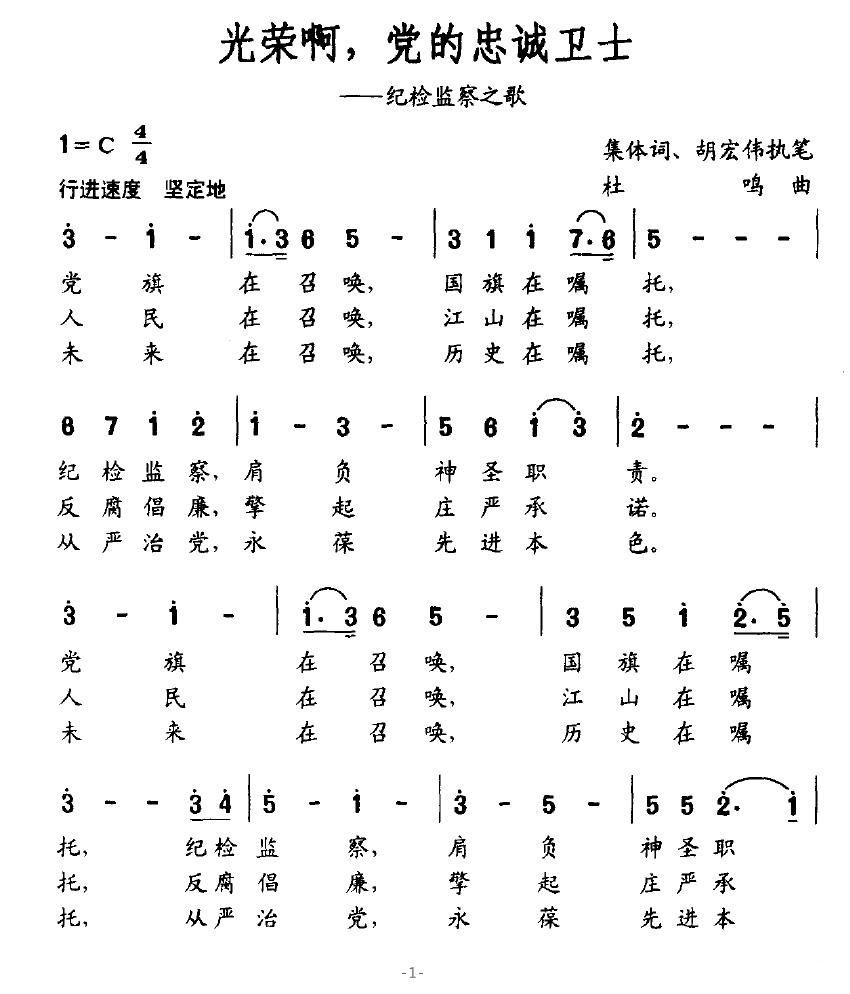 光荣啊，党的忠诚卫士
——纪检监察之歌
1=C 4/4
集体词、胡宏伟执笔
行进速度 坚定地
杜 鸣 曲
3̇ - 1̇ - | 1̇·3̇ 6 5 - | 3 1 1̇ 7·6 | 5 - - - |
党 旗 在 召 唤， 国 旗 在 嘱 托，
人 民 在 召 唤， 江 山 在 嘱 托，
未 来 在 召 唤， 历 史 在 嘱 托，
6 7 1̇ 2̇ | 1̇ - 3 - | 5 6 1̇ 3̇ | 2̇ - - - |
纪 检 监 察， 肩 负 神 圣 职 责。
反 腐 倡 廉， 擎 起 庄 严 承 诺。
从 严 治 党， 永 葆 先 进 本 色。
3̇ - 1̇ - | 1̇·3̇ 6 5 - | 3 5 1̇ 2̇·5̇ |
党 旗 在 召 唤， 国 旗 在 嘱
人 民 在 召 唤， 江 山 在 嘱
未 来 在 召 唤， 历 史 在 嘱
3̇ - - 3̇ 4̇ | 5̇ - 1̇ - | 3̇ - 5 - | 5 5 2̇· 1̇ |
托， 纪 检 监 察， 肩 负 神 圣 职
托， 反 腐 倡 廉， 擎 起 庄 严 承
托， 从 严 治 党， 永 葆 先 进 本
-1-